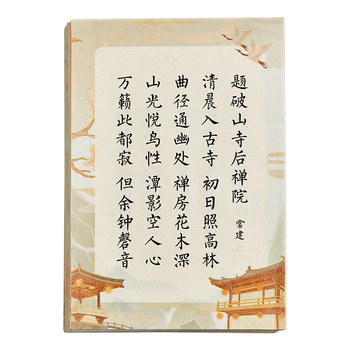 题破山寺后禅院 常建
清晨入古寺 初日照高林
曲径通幽处 禅房花木深
山光悦鸟性 潭影空人心
万籁此都寂 但余钟磬音